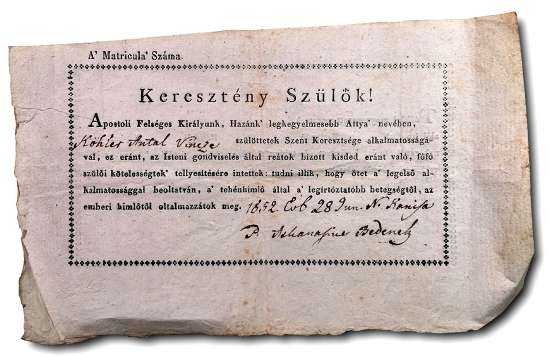 A' Matricula' Száma
Keresztény Szülők!
Apostoli Felséges Királyunk, Hazánk' legkegyelmesebb Attya' nevében,
Köhler Antal Vincze szülöttetek Szent Keresztsége alkalmatosságá-
val, ez eránt, az Isteni gondviselés által reátok bízott kisded eránt való, főfő
szülői kötelességtek' tellyesítésére intettek: tudni illik, hogy ötet a' legelső al-
kalmatossággal beoltatván, a' tehénhimlő által a' legirtóztatóbb betegségtől, az
emberi himlőtől oltalmazzátok meg. 1852 Évb 28 Jun. N. Kanisa
P. Athanasius Bedenek